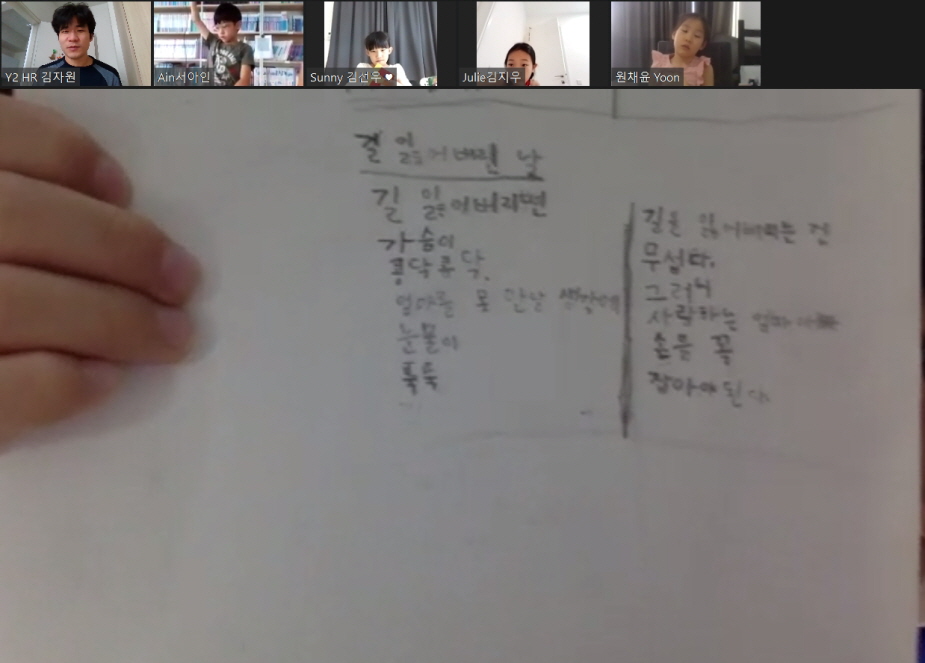 Y2 HR 김자원
Ain서아인
Sunny 김선우 ♥
Julie김지우
원채윤 Yoon
길 잃어버린 날
길 잃어버리면
가슴이
콩닥콩닥.
엄마를 못 만날 생각에
눈물이
뚝뚝
길을 잃어버리는 건
무섭다.
그러니
사랑하는 엄마아빠
손을 꼭
잡아야된다.